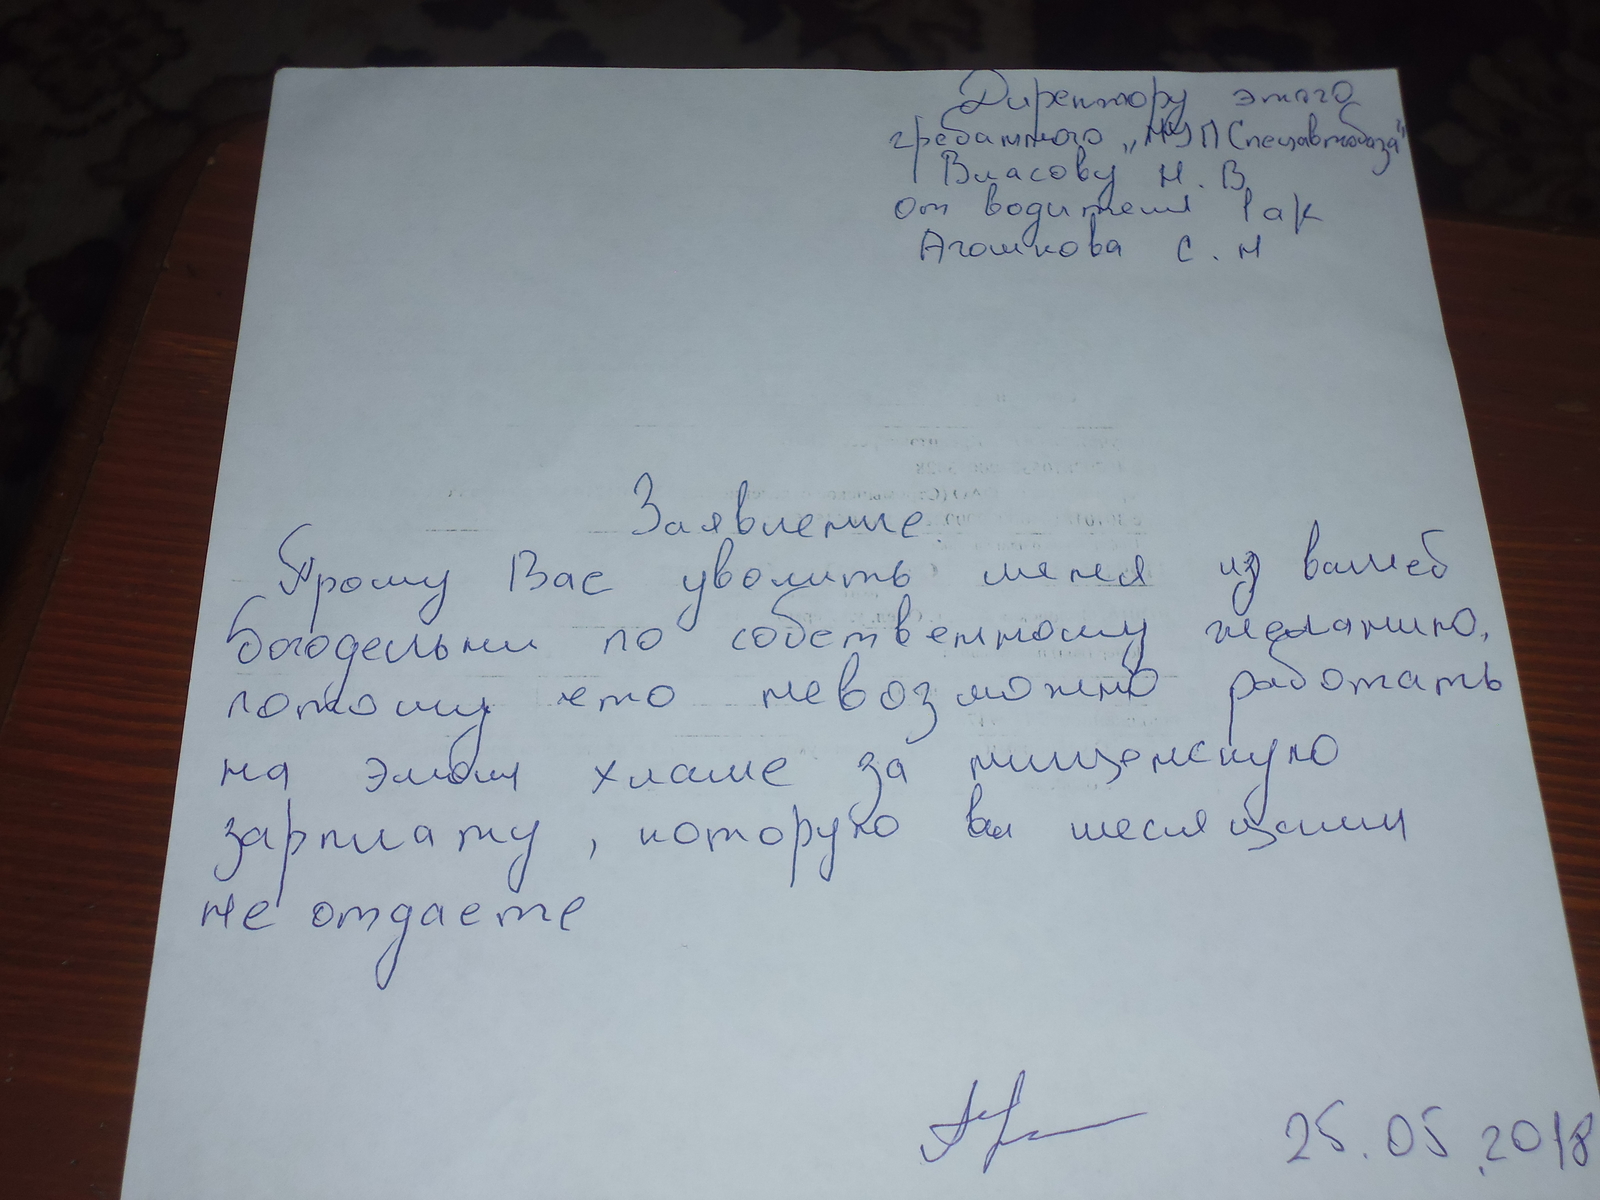 Директору этого
гребанного „МУП Спецавтобаза"
Власову Н. В
от водителя
Агошкова С. Н
Заявление.
Прошу Вас уволить меня из вашей
богодельни по собственному желанию,
потому что невозможно работать
на этом хламе за нищенскую
зарплату, которую вы месяцами
не отдаете
25.05.2018